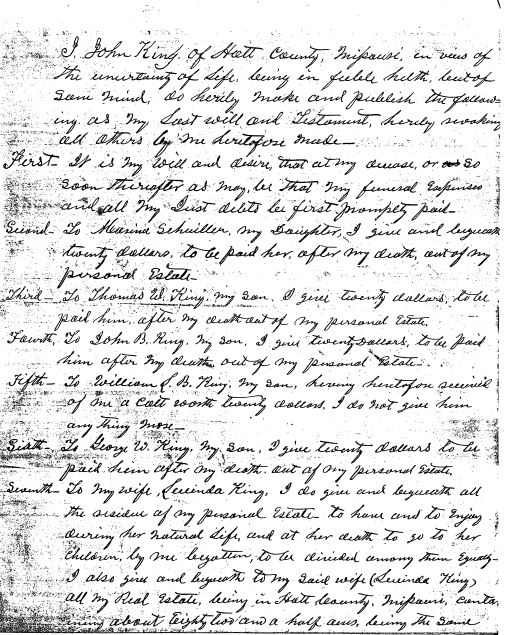 I, John King, of Holt County, Missouri, in view of
the uncertainty of Life, being in feeble helth, but of
sane mind, do herily make and publish the follow-
ing, as my Last will and Testament, hereby revoking
all others by me heretofore made—
First— It is my will and desire, that at my decease, or so
soon thereafter as may, be that my funeral Expenses
and all my Just debts be first promptly paid—
Second— To my Daughter, I give and bequeath
twenty dollars, to be paid her, after my death, out of my
personal Estate—
Third— To Thomas W. King, my son, I give twenty dollars, to be
paid him, after my death out of my personal Estate.
Fourth, To John B. King, my son, I give twenty Dollars, to be paid
him after my death, out of my personal Estate—
Fifth— To William S. B. King, my son, having heretofore received
of me a Colt worth twenty dollars, I do not give him
any thing more—
Sixth— To George W. King, my son, I give twenty dollars to be
paid him after my death, out of my personal Estate,
Seventh— To my wife, Lucinda King, I do give and bequeath all
the residue of my personal Estate— to have and to Enjoy
during her natural Life, and at her death to go to her
Children, by me begotten, to be divided among them Equally—
I also give and bequeath to my said wife (Lucinda King)
all my Real Estate, being in Holt County, Missouri, conta-
ining about Eighty two and a half acres, being the same